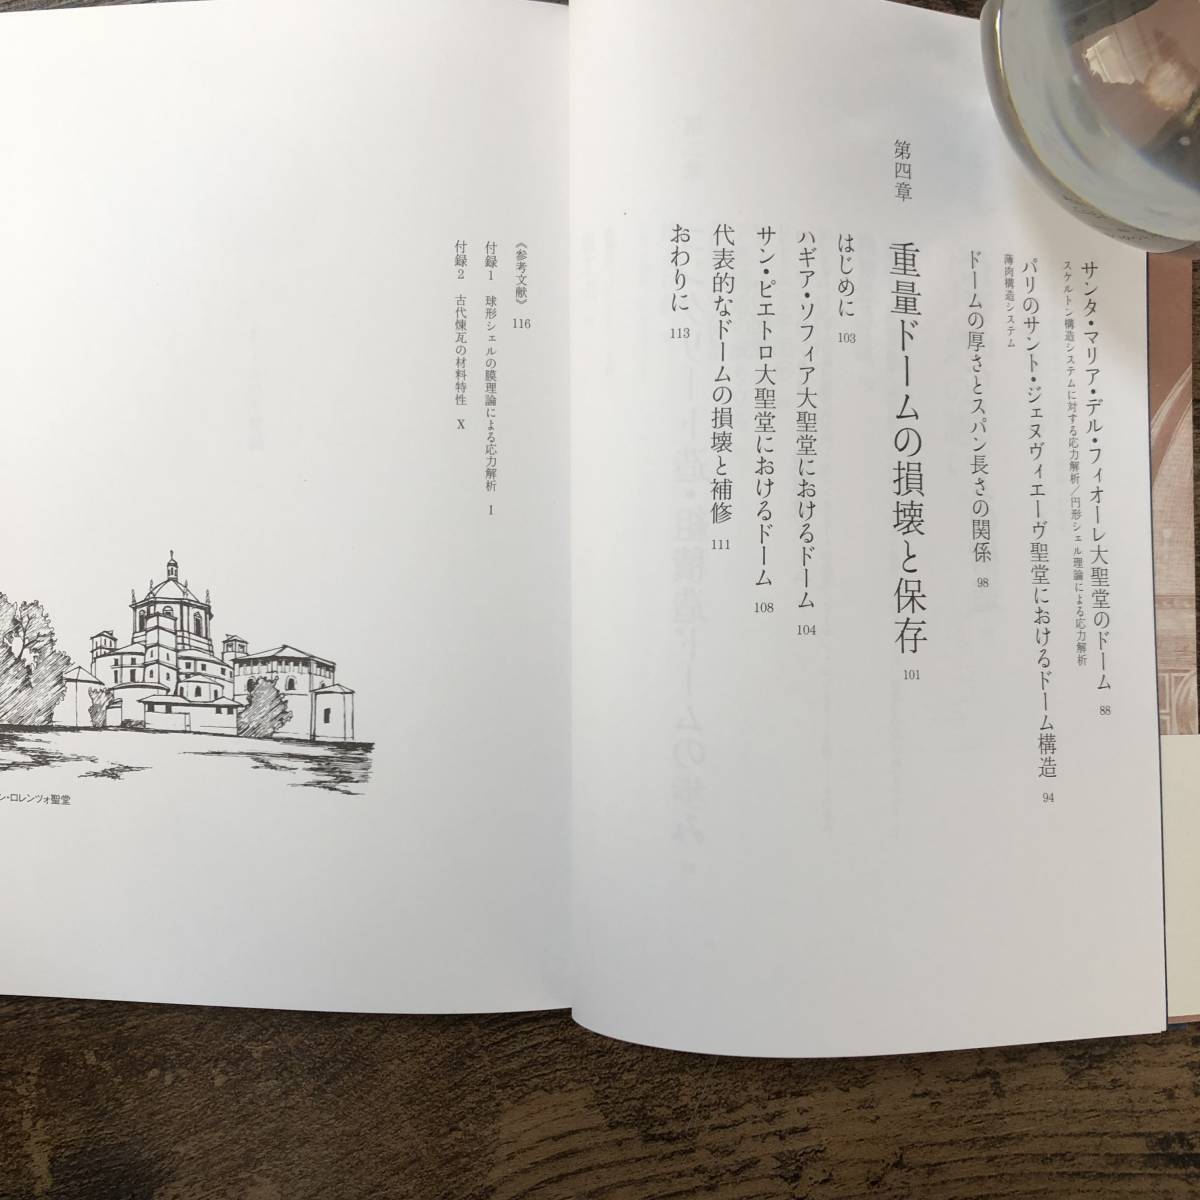 サンタ・マリア・デル・フィオーレ大聖堂のドーム 88
スケルトン構造システムに対する応力解析／円形シェル理論による応力解析
パリのサント・ジェヌヴィエーヴ聖堂におけるドーム構造 94
薄肉構造システム
ドームの厚さとスパン長さの関係 98
第四章 重量ドームの損壊と保存 101
はじめに 103
ハギア・ソフィア大聖堂におけるドーム 104
サン・ピエトロ大聖堂におけるドーム 108
代表的なドームの損壊と補修 111
おわりに 113
《参考文献》 116
付録1 球形シェルの膜理論による応力解析 I
付録2 古代煉瓦の材料特性 X
ン・ロレンツォ聖堂